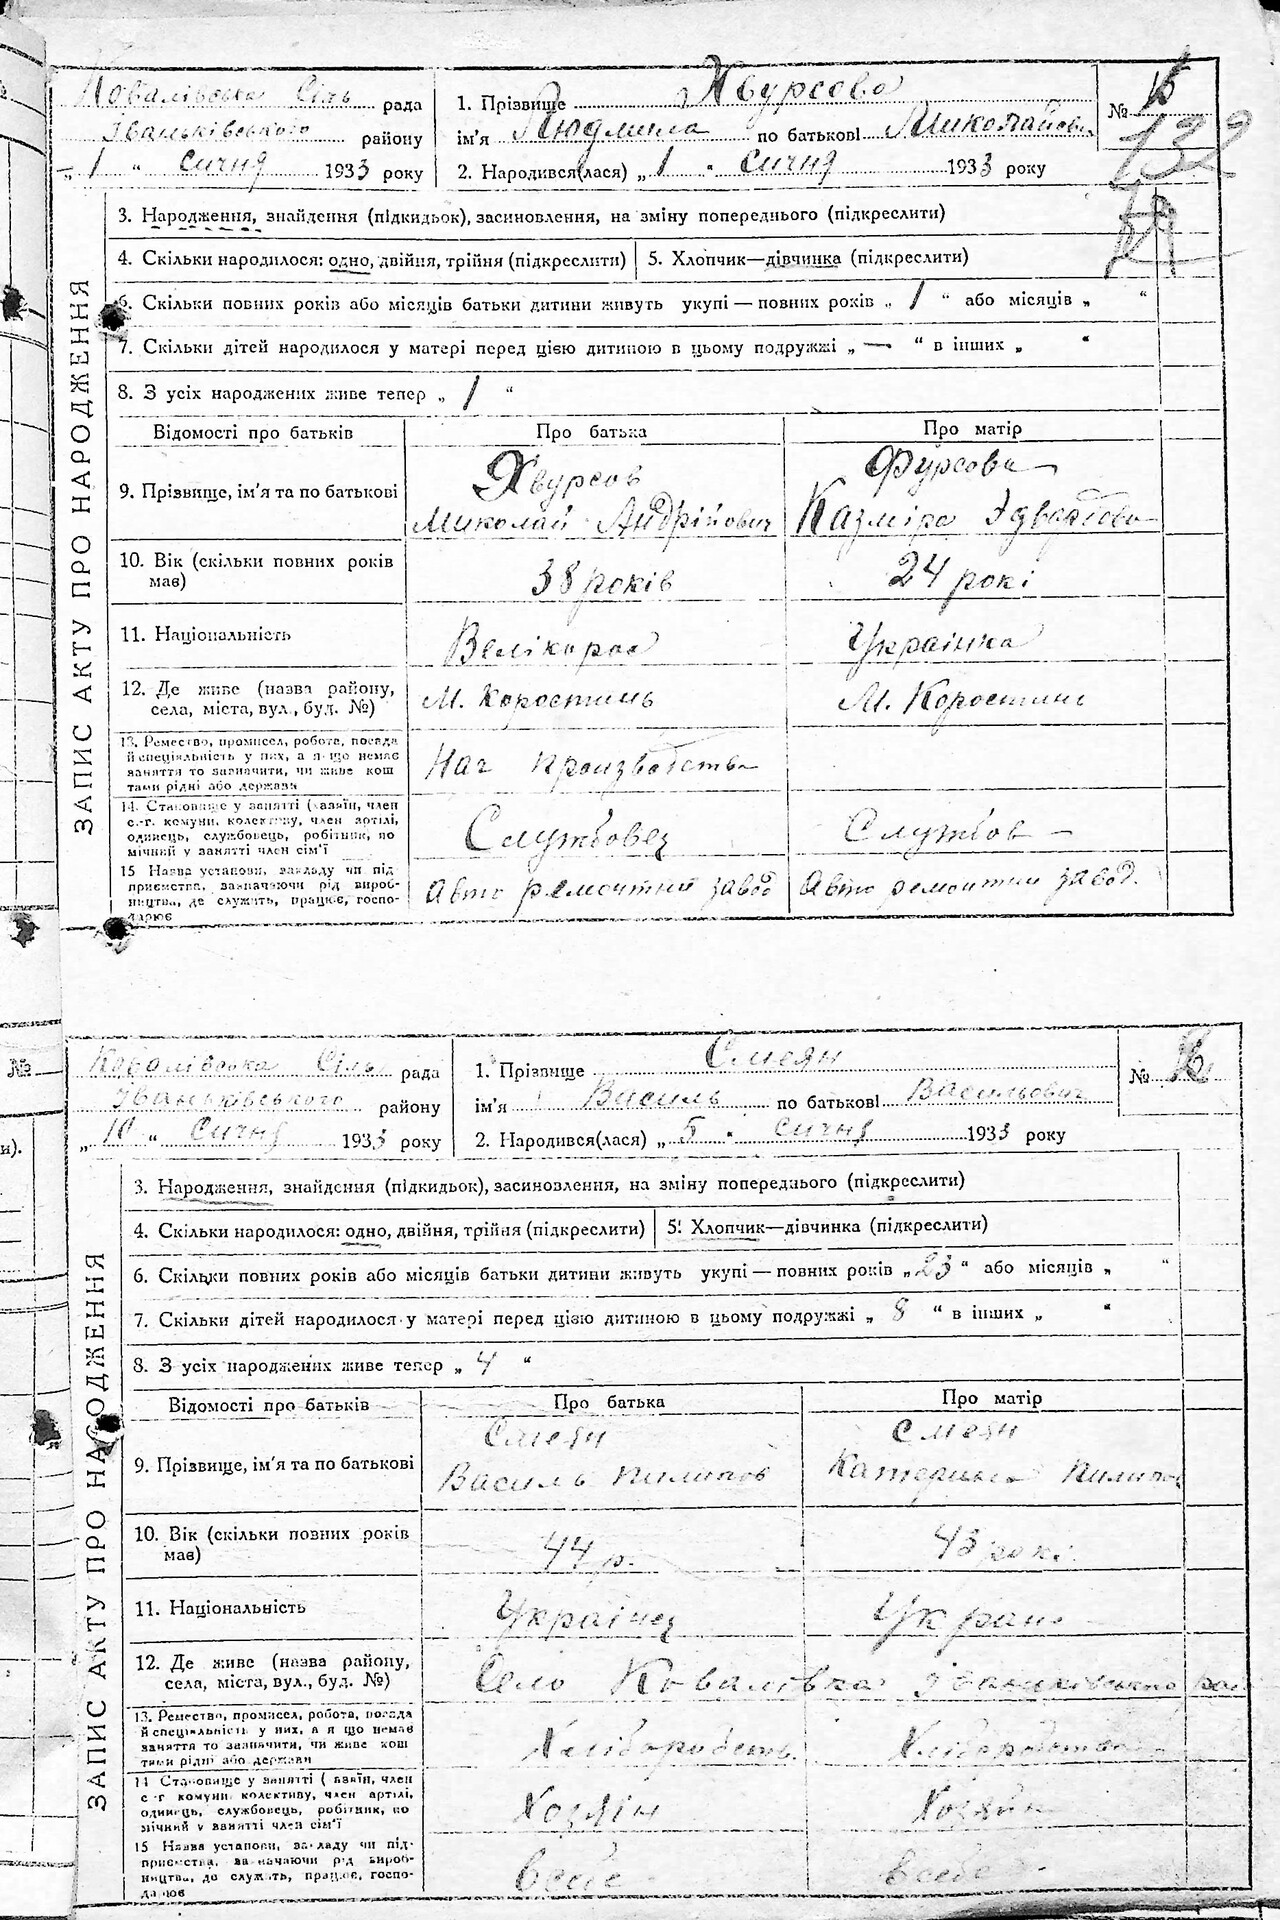 Ковалівська Сіль рада
Іваньківського району
„ 1 “ Сичня 1933 року
1. Прізвище Хвурсова
ім'я Людмила по батькові Миколайовн
2. Народився(лася) „ 1 “ Сичня 1933 року
№
132
ЗАПИС АКТУ ПРО НАРОДЖЕННЯ
3. Народження, знайдення (підкидьок), засиновлення, на зміну попереднього (підкреслити)
4. Скільки народилося: одно, двійня, трійня (підкреслити) 5. Хлопчик—дівчинка (підкреслити)
6. Скільки повних років або місяців батьки дитини живуть укупі — повних років „ 1 “ або місяців „ “
7. Скільки дітей народилося у матері перед цією дитиною в цьому подружжі „ — “ в інших „ “
8. З усіх народжених живе тепер „ 1 “
Відомості про батьків Про батька Про матір
9. Прізвище, ім'я та по батькові
Хвурсов
Миколай Андрійович
Фурсова
Казміра Эдвардова
10. Вік (скільки повних років має) 38 років 24 рокі
11. Національність Велікорос Українка
12. Де живе (назва району, села, міста, вул., буд. №) М. Коростинь М. Коростинь
13. Ремество, промисел, робота, посада
й спеціяльність у них, а якщо немає
заняття то зазначити, чи живе кош
тами рідні або держави
Нач производства
14. Становище у занятті (хазяїн, член
с.-г. комуни, колективу, член артілі,
одинець, службовець, робітник, по
мічний у занятті член сім'ї
Службовец Службов —
15 Назва установи, закладу чи під
приємства, зазначаючи рід вироб-
ництва, де служить, працює, госпо-
дарює
Авто ремонтний завод Авто ремонтни завод.
№
и).
Ковалівська Сіль рада
Іваньківського району
„ 10 “ Сичня 1933 року
1. Прізвище Смеян
ім'я Василь по батькові Васильович
2. Народився(лася) „ 5 “ Сичня 1933 року
№
ЗАПИС АКТУ ПРО НАРОДЖЕННЯ
3. Народження, знайдення (підкидьок), засиновлення, на зміну попереднього (підкреслити)
4. Скільки народилося: одно, двійня, трійня (підкреслити) 5. Хлопчик—дівчинка (підкреслити)
6. Скільки повних років або місяців батьки дитини живуть укупі — повних років „ 23 “ або місяців „ “
7. Скільки дітей народилося у матері перед цією дитиною в цьому подружжі „ 8 “ в інших „ “
8. З усіх народжених живе тепер „ 4 “
Відомості про батьків Про батька Про матір
9. Прізвище, ім'я та по батькові
Смеян
Василь Пилипов
Смеян
Катерина Пилипов
10. Вік (скільки повних років має) 44 р. 43 рокі
11. Національність Українец Украін
12. Де живе (назва району, села, міста, вул., буд. №) Село Ковалівка Іваньківського рай
13. Ремество, промисел, робота, посада
й спеціяльність у них, а якщо немає
заняття то зазначити, чи живе кош
тами рідні або держави
Хлібородств. Хлібородств
14 Становище у занятті (хазяїн, член
с-г комуни колективу, член артілі,
одинець, службовець, робітник, по
мічний у занятті член сім'ї
Хозяін Хозяйн
15 Назва установи, закладу чи під-
приємства, зазначаючи рід вироб-
ництва, де служить, працює, госпо-
дарює
в себе в себе